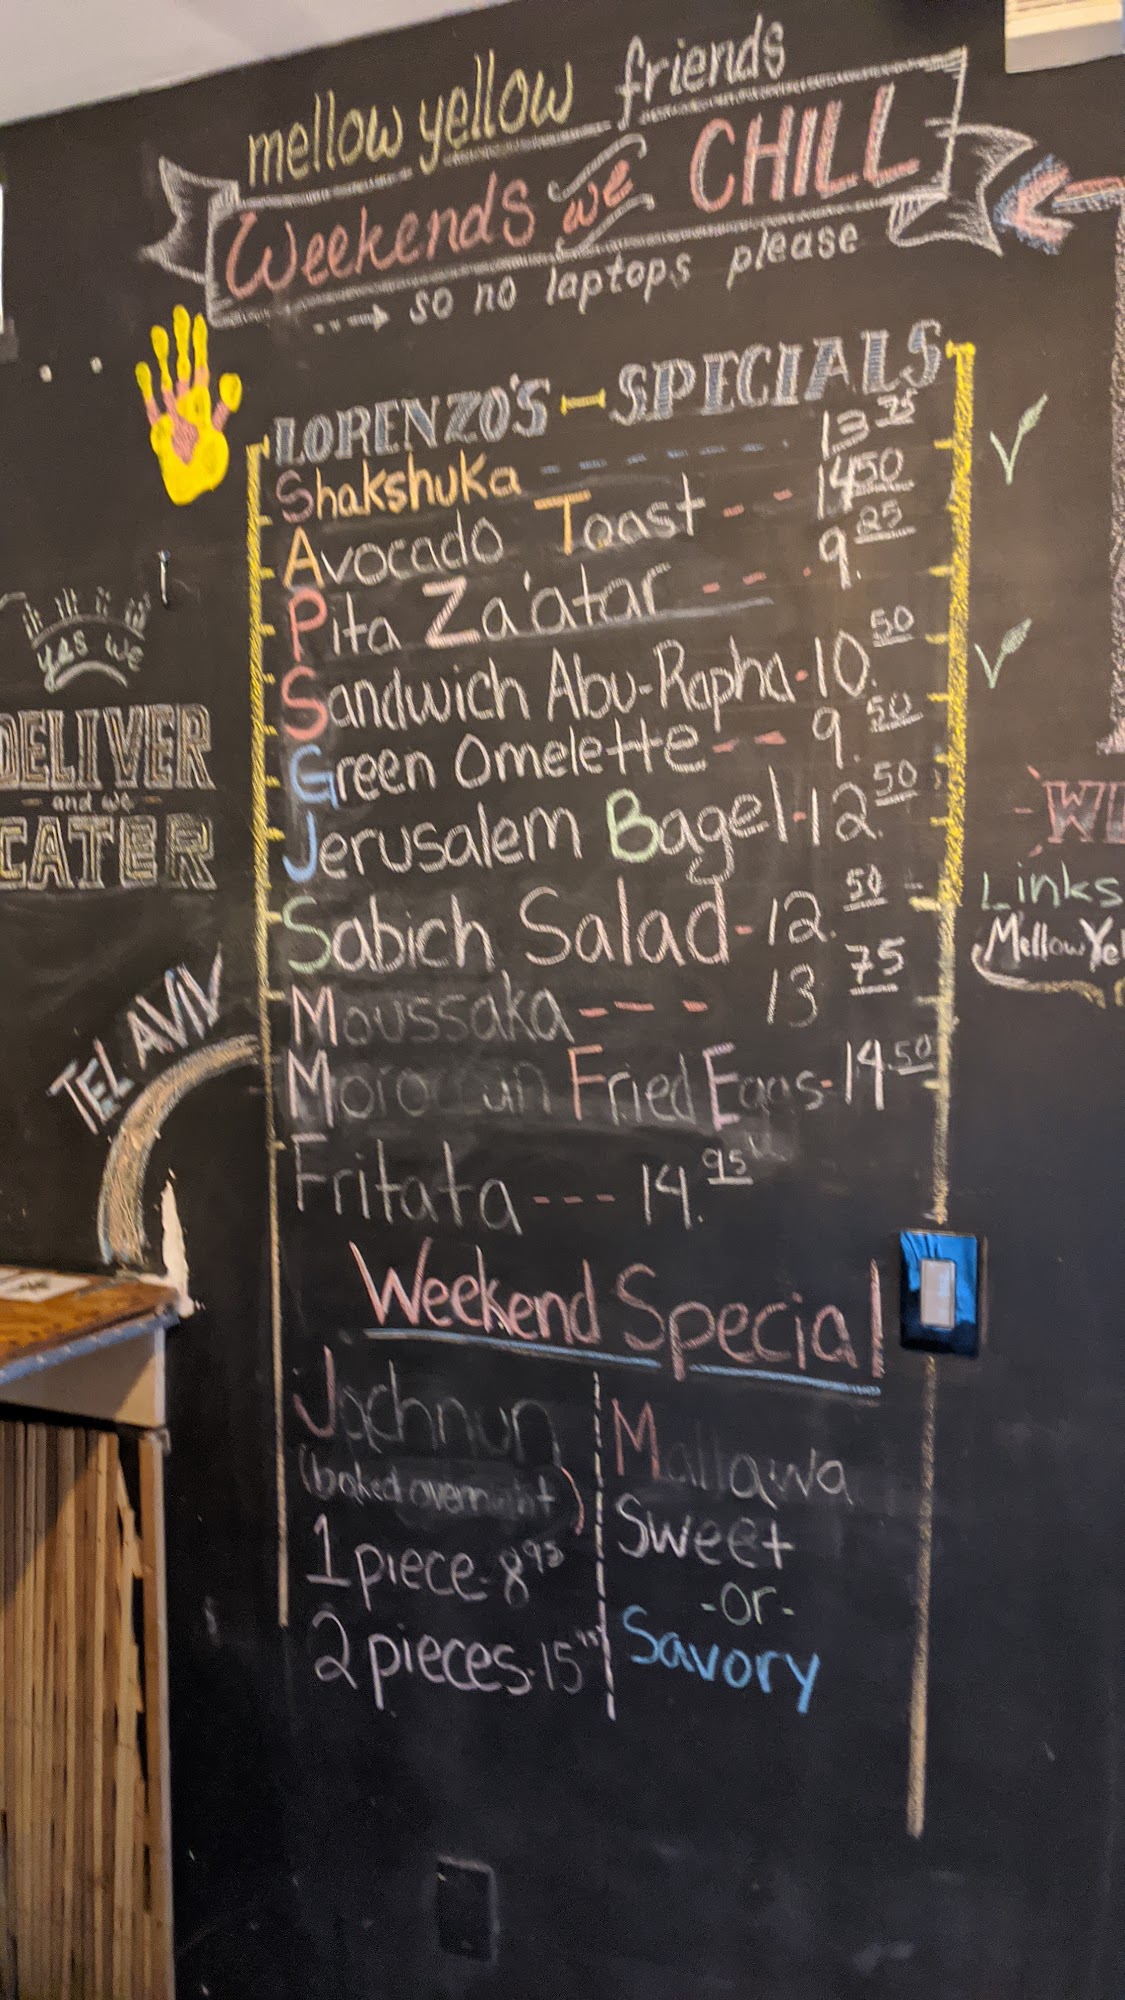 mellow yellow friends
Weekends we CHILL
so no laptops please
LORENZO'S - SPECIALS
Shakshuka ------ 13.75
Avocado Toast -- 14.50
Pita Za'atar --- 9.25
Sandwich Abu-Rapha - 10.50
Green Omelette -- 9.50
Jerusalem Bagel - 12.50
Sabich Salad - 12.50
Moussaka --- 13 75
Moroccan Fried Eggs - 14.50
Fritata --- 14.95
Weekend Special
Jachnun
(baked overnight)
1 piece - 8 95
2 pieces - 15
Mallawa
Sweet
-or-
Savory
yes we
DELIVER
- and we -
CATER
TEL AVIV
Links